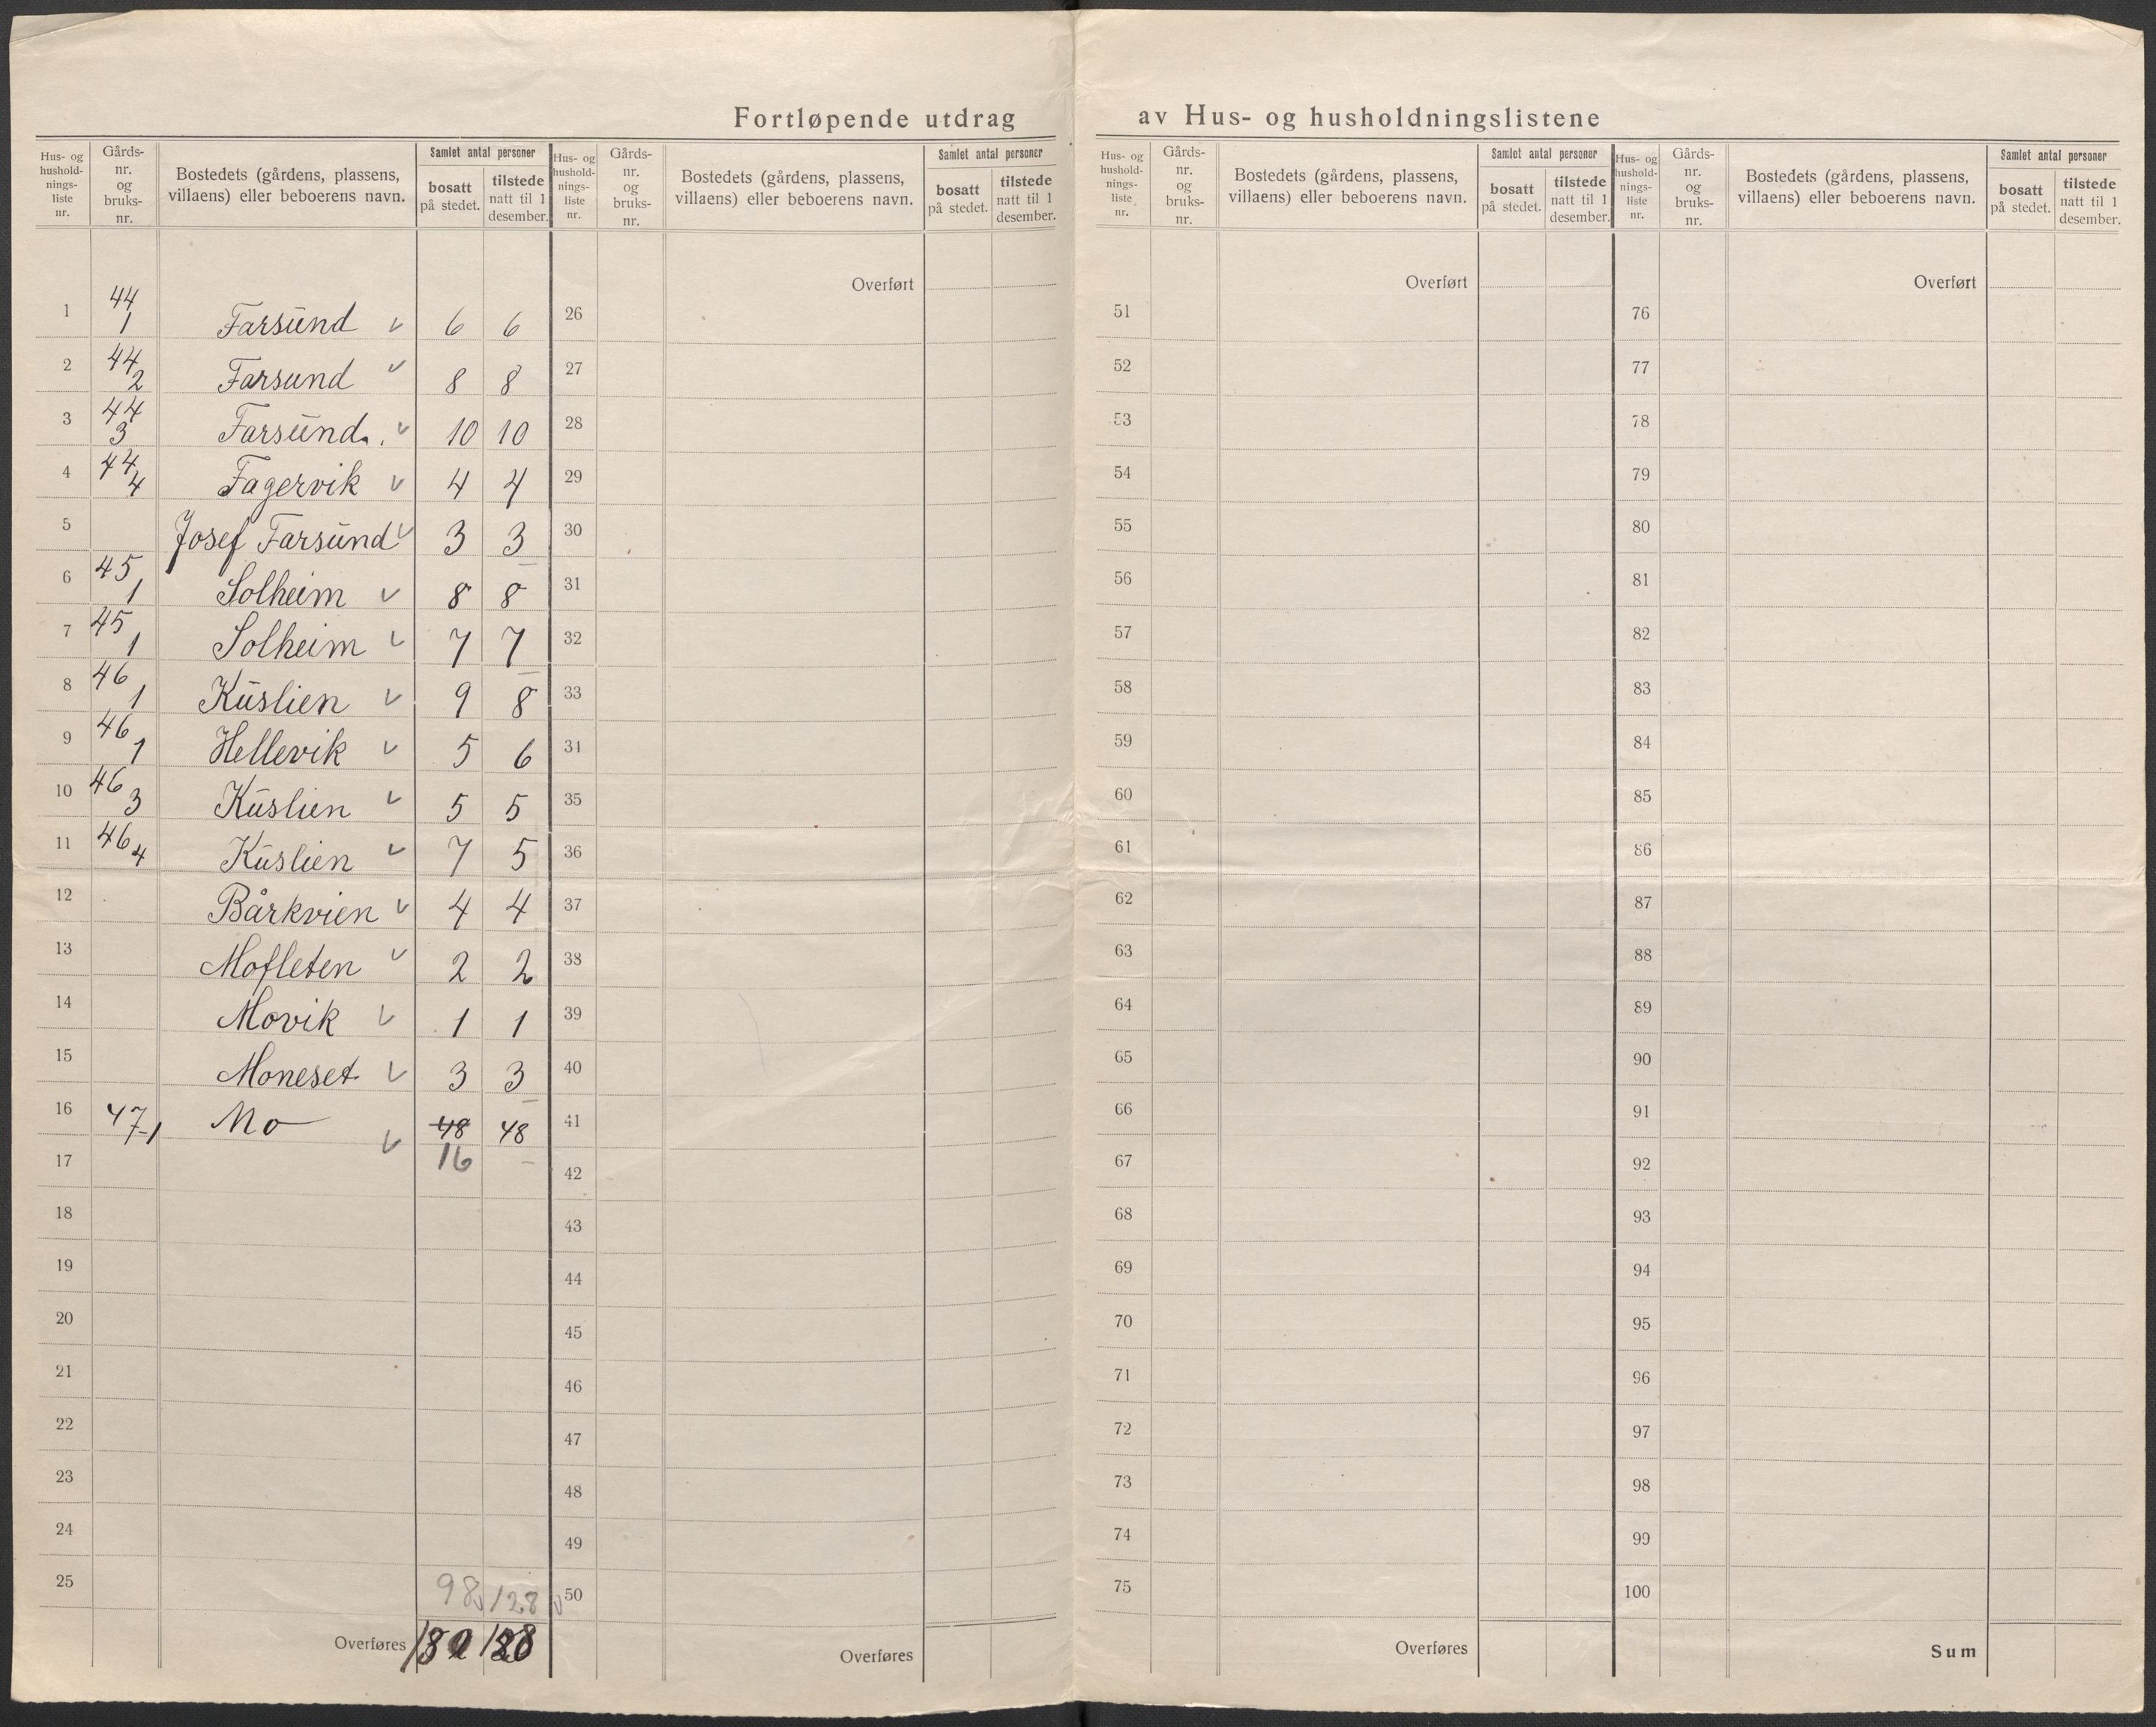 Fortløpende utdrag av Hus- og husholdningslistene
Hus- og husholdnings-liste nr. Gårds-nr. og bruks-nr. Bostedets (gårdens, plassens, villaens) eller beboerens navn. Samlet antal personer bosatt på stedet. tilstede natt til 1 desember.
1 44 1 Farsund v 6 6
2 44 2 Farsund v 8 8
3 44 3 Farsund. v 10 10
4 44 4 Fagervik v 4 4
5 Josef Farsund v 3 3
6 45 1 Solheim v 8 8
7 45 1 Solheim v 7 7
8 46 1 Kuslien v 9 8
9 46 1 Hellevik v 5 6
10 46 3 Kuslien v 5 5
11 46 4 Kuslien v 7 5
12 Bårkvien v 4 4
13 Mofleten v 2 2
14 Movik v 1 1
15 Moneset v 3 3
16 47-1 Mo v 48 48
17 16 –
18
19
20
21
22
23
24
25 98 v 128 v
Overføres 128
Hus- og husholdnings-liste nr. Gårds-nr. og bruks-nr. Bostedets (gårdens, plassens, villaens) eller beboerens navn. Samlet antal personer bosatt på stedet. tilstede natt til 1 desember.
Overført
26
27
28
29
30
31
32
33
34
35
36
37
38
39
40
41
42
43
44
45
46
47
48
49
50
Overføres
Hus- og husholdnings-liste nr. Gårds-nr. og bruks-nr. Bostedets (gårdens, plassens, villaens) eller beboerens navn. Samlet antal personer bosatt på stedet. tilstede natt til 1 desember.
Overført
51
52
53
54
55
56
57
58
59
60
61
62
63
64
65
66
67
68
69
70
71
72
73
74
75
Overføres
Hus- og husholdnings-liste nr. Gårds-nr. og bruks-nr. Bostedets (gårdens, plassens, villaens) eller beboerens navn. Samlet antal personer bosatt på stedet. tilstede natt til 1 desember.
Overført
76
77
78
79
80
81
82
83
84
85
86
87
88
89
90
91
92
93
94
95
96
97
98
99
100
Sum